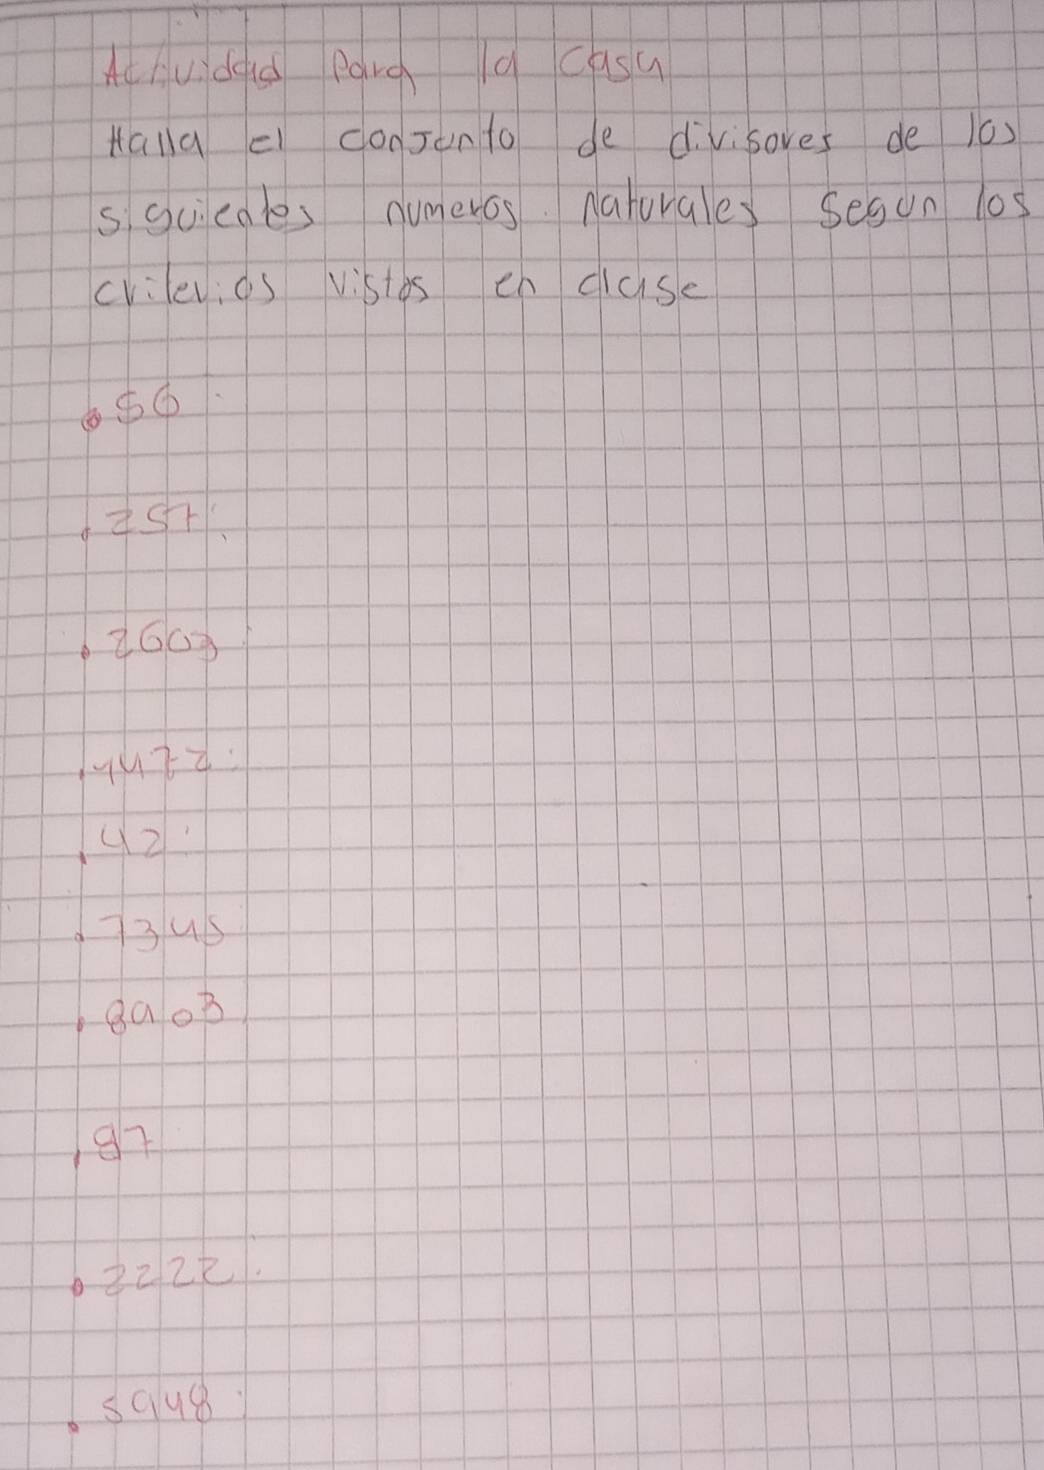 Actividad Para la Casa
Halla el conJunto de divisores de los
siguientes numeros naturales segun los
criterios vistos en clase
56
257:
2603
1472:
42:
7345
8903
87
2222:
5948: